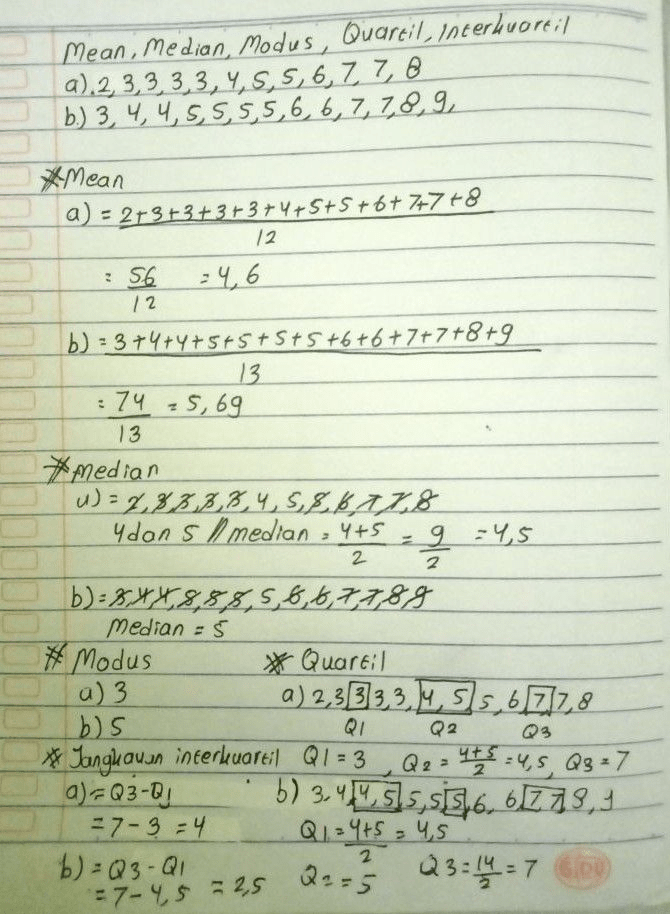 Mean, Median, Modus, Quartil, Interkuartil
a). 2, 3, 3, 3, 3, 4, 5, 5, 6, 7, 7, 8
b.) 3, 4, 4, 5, 5, 5, 5, 6, 6, 7, 7, 8, 9,
* Mean
a) = 2+3+3+3+3+4+5+5+6+7+7+8
12
= 56 = 4,6
12
b) = 3+4+4+5+5+5+5+6+6+7+7+8+9
13
= 74 = 5,69
13
* Median
a) = 2, 3, 3, 3, 3, 4, 5, 5, 6, 7, 7, 8
4 dan 5 // median = 4+5 = 9 = 4,5
2 2
b) = 3, 4, 4, 5, 5, 5, 5, 6, 6, 7, 7, 8, 9
Median = 5
* Modus
a) 3
b) 5
* Quartil
a) 2, 3 3 3, 3, 4, 5, 5, 6 7 7, 8
Q1 Q2 Q3
Q1 = 3, Q2 = 4+5 = 4,5, Q3 = 7
2
* Jangkauan interkuartil
a) = Q3-Q1
= 7 - 3 = 4
b) 3, 4, 4, 5, 5, 5 5, 6, 6, 7 7 8, 9
Q1 = 4+5 = 4,5
2
Q2 = 5 Q3 = 14 = 7
2
b) = Q3 - Q1
= 7 - 4,5 = 2,5